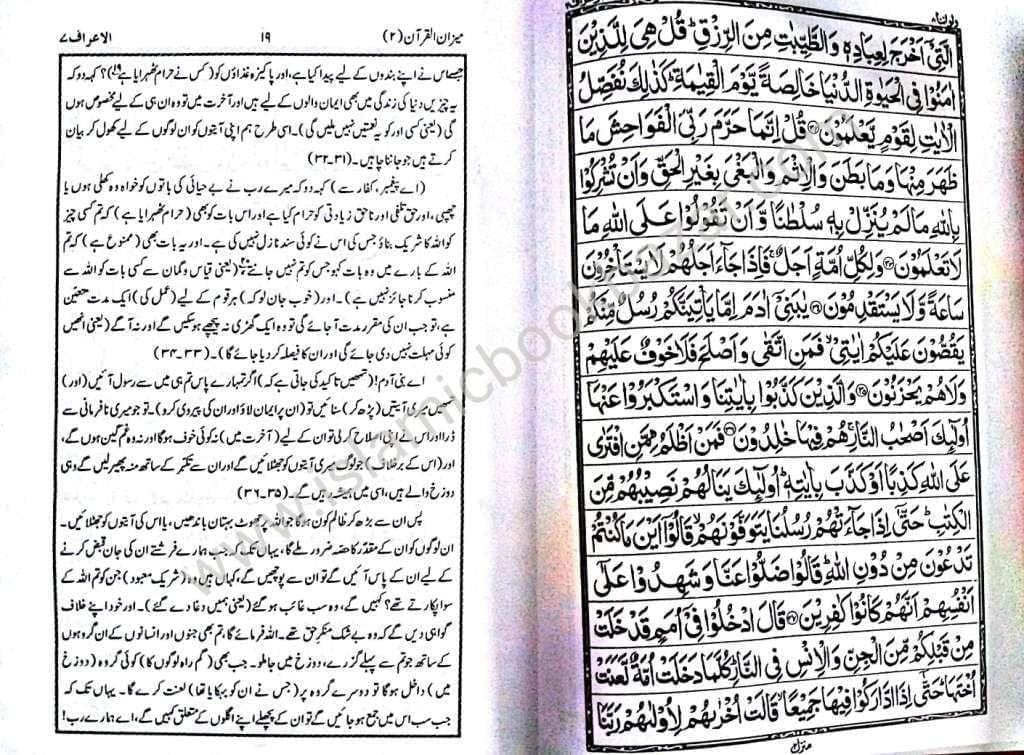 الَّتِیْۤ اَخْرَجَ لِعِبَادِهٖ وَالطَّیِّبٰتِ مِنَ الرِّزْقِ ؕ قُلْ هِیَ لِلَّذِیْنَ
اٰمَنُوْا فِی الْحَیٰوةِ الدُّنْیَا خَالِصَةً یَّوْمَ الْقِیٰمَةِ ؕ كَذٰلِكَ نُفَصِّلُ
الْاٰیٰتِ لِقَوْمٍ یَّعْلَمُوْنَ ﴿۳۲﴾ قُلْ اِنَّمَا حَرَّمَ رَبِّیَ الْفَوَاحِشَ مَا
ظَهَرَ مِنْهَا وَمَا بَطَنَ وَالْاِثْمَ وَالْبَغْیَ بِغَیْرِ الْحَقِّ وَاَنْ تُشْرِكُوْا
بِاللّٰهِ مَا لَمْ یُنَزِّلْ بِهٖ سُلْطٰنًا وَّاَنْ تَقُوْلُوْا عَلَی اللّٰهِ مَا
لَا تَعْلَمُوْنَ ﴿۳۳﴾ وَلِكُلِّ اُمَّةٍ اَجَلٌ ۚ فَاِذَا جَآءَ اَجَلُهُمْ لَا یَسْتَاْخِرُوْنَ
سَاعَةً وَّلَا یَسْتَقْدِمُوْنَ ﴿۳۴﴾ یٰبَنِیْۤ اٰدَمَ اِمَّا یَاْتِیَنَّكُمْ رُسُلٌ مِّنْكُمْ
یَقُصُّوْنَ عَلَیْكُمْ اٰیٰتِیْ ۙ فَمَنِ اتَّقٰی وَاَصْلَحَ فَلَا خَوْفٌ عَلَیْهِمْ
وَلَا هُمْ یَحْزَنُوْنَ ﴿۳۵﴾ وَالَّذِیْنَ كَذَّبُوْا بِاٰیٰتِنَا وَاسْتَكْبَرُوْا عَنْهَاۤ
اُولٰٓئِكَ اَصْحٰبُ النَّارِ ۚ هُمْ فِیْهَا خٰلِدُوْنَ ﴿۳۶﴾ فَمَنْ اَظْلَمُ مِمَّنِ افْتَرٰی
عَلَی اللّٰهِ كَذِبًا اَوْ كَذَّبَ بِاٰیٰتِهٖ ؕ اُولٰٓئِكَ یَنَالُهُمْ نَصِیْبُهُمْ مِّنَ
الْكِتٰبِ ؕ حَتّٰۤی اِذَا جَآءَتْهُمْ رُسُلُنَا یَتَوَفَّوْنَهُمْ ۙ قَالُوْۤا اَیْنَ مَا كُنْتُمْ
تَدْعُوْنَ مِنْ دُوْنِ اللّٰهِ ؕ قَالُوْا ضَلُّوْا عَنَّا وَشَهِدُوْا عَلٰۤی
اَنْفُسِهِمْ اَنَّهُمْ كَانُوْا كٰفِرِیْنَ ﴿۳۷﴾ قَالَ ادْخُلُوْا فِیْۤ اُمَمٍ قَدْ خَلَتْ
مِنْ قَبْلِكُمْ مِّنَ الْجِنِّ وَالْاِنْسِ فِی النَّارِ ؕ كُلَّمَا دَخَلَتْ اُمَّةٌ لَّعَنَتْ
اُخْتَهَا ؕ حَتّٰۤی اِذَا ادَّارَكُوْا فِیْهَا جَمِیْعًا ۙ قَالَتْ اُخْرٰىهُمْ لِاُوْلٰىهُمْ رَبَّنَا
منزل
میزان القرآن (۲) ۱۹ الاعراف ۷
جسے اس نے اپنے بندوں کے لیے پیدا کیا ہے، اور پاکیزہ غذاؤں کو (کس نے حرام ٹھہرایا ہے)؟ کہہ دو کہ
یہ چیزیں دنیا کی زندگی میں بھی ایمان والوں کے لیے ہیں اور آخرت میں تو وہ ان ہی کے لیے مخصوص ہوں
گی (یعنی کسی اور کو یہ نعمتیں نہیں ملیں گی)۔ اسی طرح ہم اپنی آیتوں کو ان لوگوں کے لیے کھول کر بیان
کرتے ہیں جو جاننا چاہیں۔ (۳۱۔۳۲)
(اے پیغمبر، کفار سے) کہہ دو کہ میرے رب نے بے حیائی کی باتوں کو خواہ وہ کھلی ہوں یا
چھپی، اور حق تلفی اور ناحق زیادتی کو حرام کیا ہے اور اس بات کو بھی (حرام ٹھہرایا ہے) کہ تم کسی چیز
کو اللہ کا شریک بناؤ جس کی اس نے کوئی سند نازل نہیں کی ہے۔ اور یہ بات بھی (ممنوع ہے) کہ تم
اللہ کے بارے میں وہ بات کہو جس کو تم نہیں جانتے (یعنی قیاس و گمان سے کسی بات کو اللہ سے
منسوب کرنا جائز نہیں ہے)۔ اور (خوب جان لو کہ) ہر قوم کے لیے (عمل کی) ایک مدت متعین
ہے، تو جب ان کی مقرر مدت آ جائے گی تو وہ ایک گھڑی نہ پیچھے ہو سکیں گے اور نہ آگے (یعنی انھیں
کوئی مہلت نہیں دی جائے گی اور ان کا فیصلہ کر دیا جائے گا)۔ (۳۳۔۳۴)
اے بنی آدم! (تمھیں تاکید کی جاتی ہے کہ) اگر تمہارے پاس تم ہی میں سے رسول آئیں (اور)
تمہیں میری آیتیں (پڑھ کر) سنائیں تو (ان پر ایمان لاؤ اور ان کی پیروی کرو)۔ تو جو میری نافرمانی سے
ڈرا اور اس نے اپنی اصلاح کر لی تو ان کے لیے (آخرت میں) نہ کوئی خوف ہوگا اور نہ وہ غم گین ہوں گے،
اور (اس کے برخلاف) جو لوگ میری آیتوں کو جھٹلائیں گے اور ان سے تکبر کے ساتھ منہ پھیر لیں گے وہی
دوزخ والے ہیں، اسی میں ہمیشہ رہیں گے۔ (۳۵۔۳۶)
پس ان سے بڑھ کر ظالم کون ہوگا جو اللہ پر جھوٹ بہتان باندھیں، یا اس کی آیتوں کو جھٹلائیں۔
ان لوگوں کو ان کے مقدر کا حصہ ضرور ملے گا، یہاں تک کہ جب ہمارے فرشتے ان کی جان قبض کرنے
کے لیے ان کے پاس آئیں گے تو ان سے پوچھیں گے، کہاں ہیں وہ (شریک معبود) جن کو تم اللہ کے
سوا پکارتے تھے؟ کہیں گے، وہ سب غائب ہو گئے (یعنی ہمیں دغا دے گئے)۔ اور خود اپنے خلاف
گواہی دیں گے کہ وہ بے شک منکر حق تھے۔ اللہ فرمائے گا، تم بھی جنوں اور انسانوں کے ان گروہوں
کے ساتھ جو تم سے پہلے گزرے، دوزخ میں جا ملو۔ جب بھی (گم راہ لوگوں کا) کوئی گروہ (دوزخ
میں) داخل ہوگا تو دوسرے گروہ پر (جس نے ان کو بہکایا تھا) لعنت کرے گا۔ یہاں تک کہ
جب سب اس میں جمع ہو جائیں گے تو ان کے پچھلے اپنے اگلوں کے متعلق کہیں گے، اے ہمارے رب!
www.islamicbookbazar.com